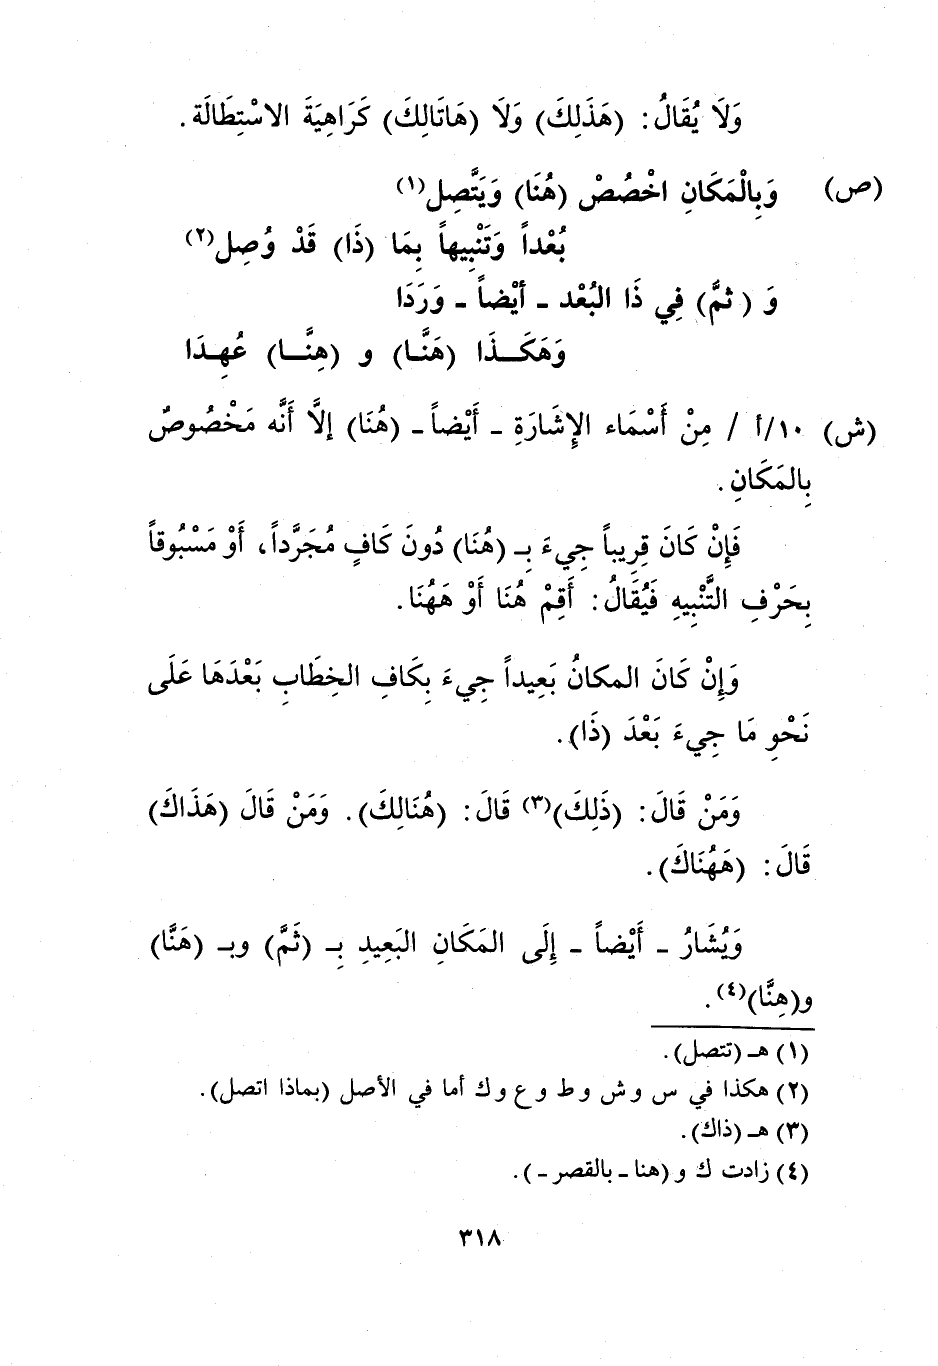 وَلَا يُقَالُ: (هَذَلِكَ) وَلَا (هَاتَالِكَ) كَرَاهِيَةَ الاسْتِطَالَة.
(ص) وَبِالْمَكَانِ اخْصُصْ (هُنَا) وَيَتَّصِل(١)
بُعْداً وَتَنْبِيهاً بِمَا (ذَا) قَدْ وُصِل(٢)
وَ (ثمَّ) فِي ذَا البُعْد - أيْضاً - وَرَدَا
وَهَكَـذَا (هَنَّـا) و (هِنَّـا) عُهِدَا
(ش) ١٠/أ / مِنْ أَسْمَاء الإِشَارَةِ - أَيْضاً - (هُنَا) إلَّا أَنَّه مَخْصُوصٌ
بِالمَكَانِ.
فَإِنْ كَانَ قِرِيباً جِيءَ بِـ (هُنَا) دُونَ كَافٍ مُجَرَّداً، أَوْ مَسْبُوقاً
بِحَرْفِ التَّنْبِيهِ فَيُقَالُ: أَقِمْ هُنَا أَوْ هَهُنَا.
وَإِنْ كَانَ المكانُ بَعِيداً جِيءَ بِكَافِ الخِطَابِ بَعْدَهَا عَلَى
نَحْوِ مَا جِيءَ بَعْدَ (ذَا).
وَمَنْ قَالَ: (ذَلِكَ)(٣) قَالَ: (هُنَالِكَ). وَمَنْ قَالَ (هَذَاكَ)
قَالَ: (هَهُنَاكَ).
وَيُشَارُ - أَيْضاً - إِلَى المَكَانِ البَعِيدِ بِـ (ثَمَّ) وبـ (هَنَّا)
و(هِنَّا)(٤).
(١) هـ (تتصل).
(٢) هكذا في س و ش و ط و ع و ك أما في الأصل (بماذا اتصل).
(٣) هـ (ذاك).
(٤) زادت ك و (هنا - بالقصر -).
٣١٨